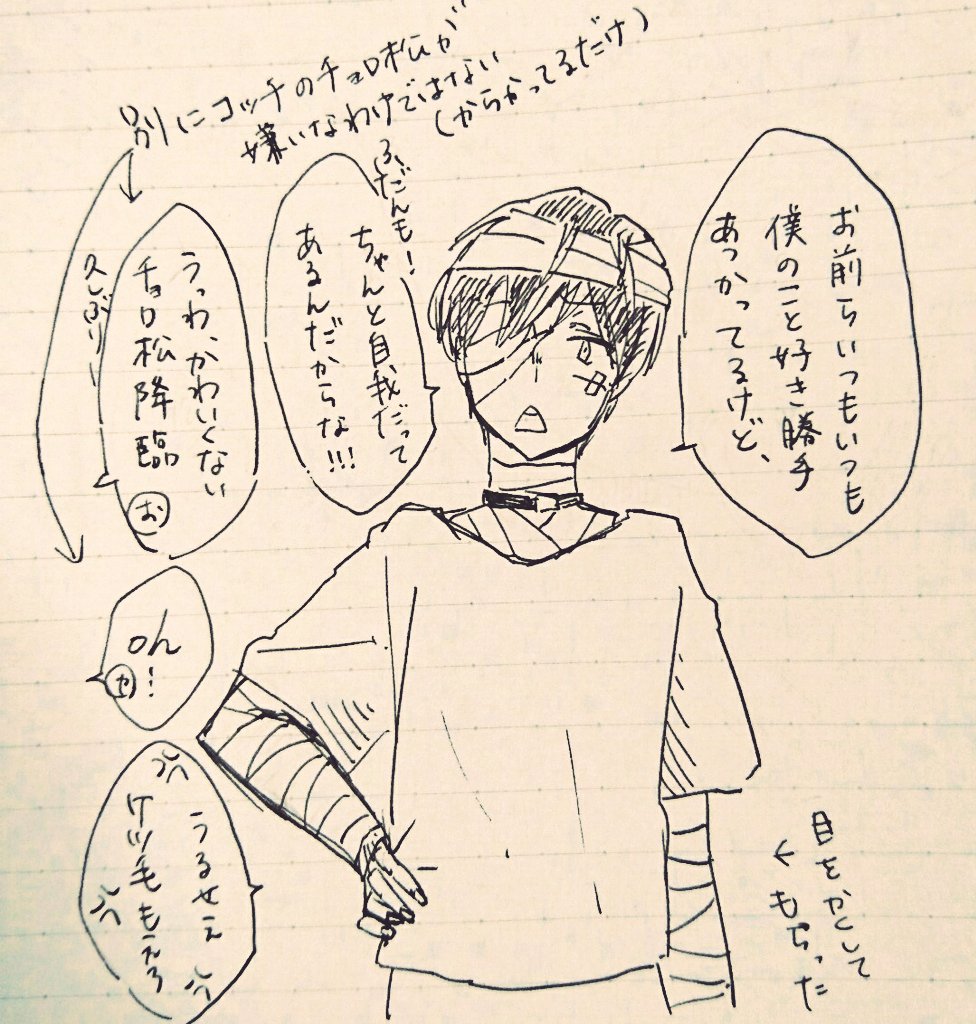 お前らいつもいつも
僕のこと好き勝手
あつかってるけど、
ふだんも!
ちゃんと自我だって
あるんだからな!!!
別にコッチのチョロ松が
嫌いなわけではない
(からかってるだけ)
うっわ、かわいくない
チョロ松降臨
お
久しぶりー
んん
!
うるせぇ
ケツ毛もえろ
目をかして
もらった